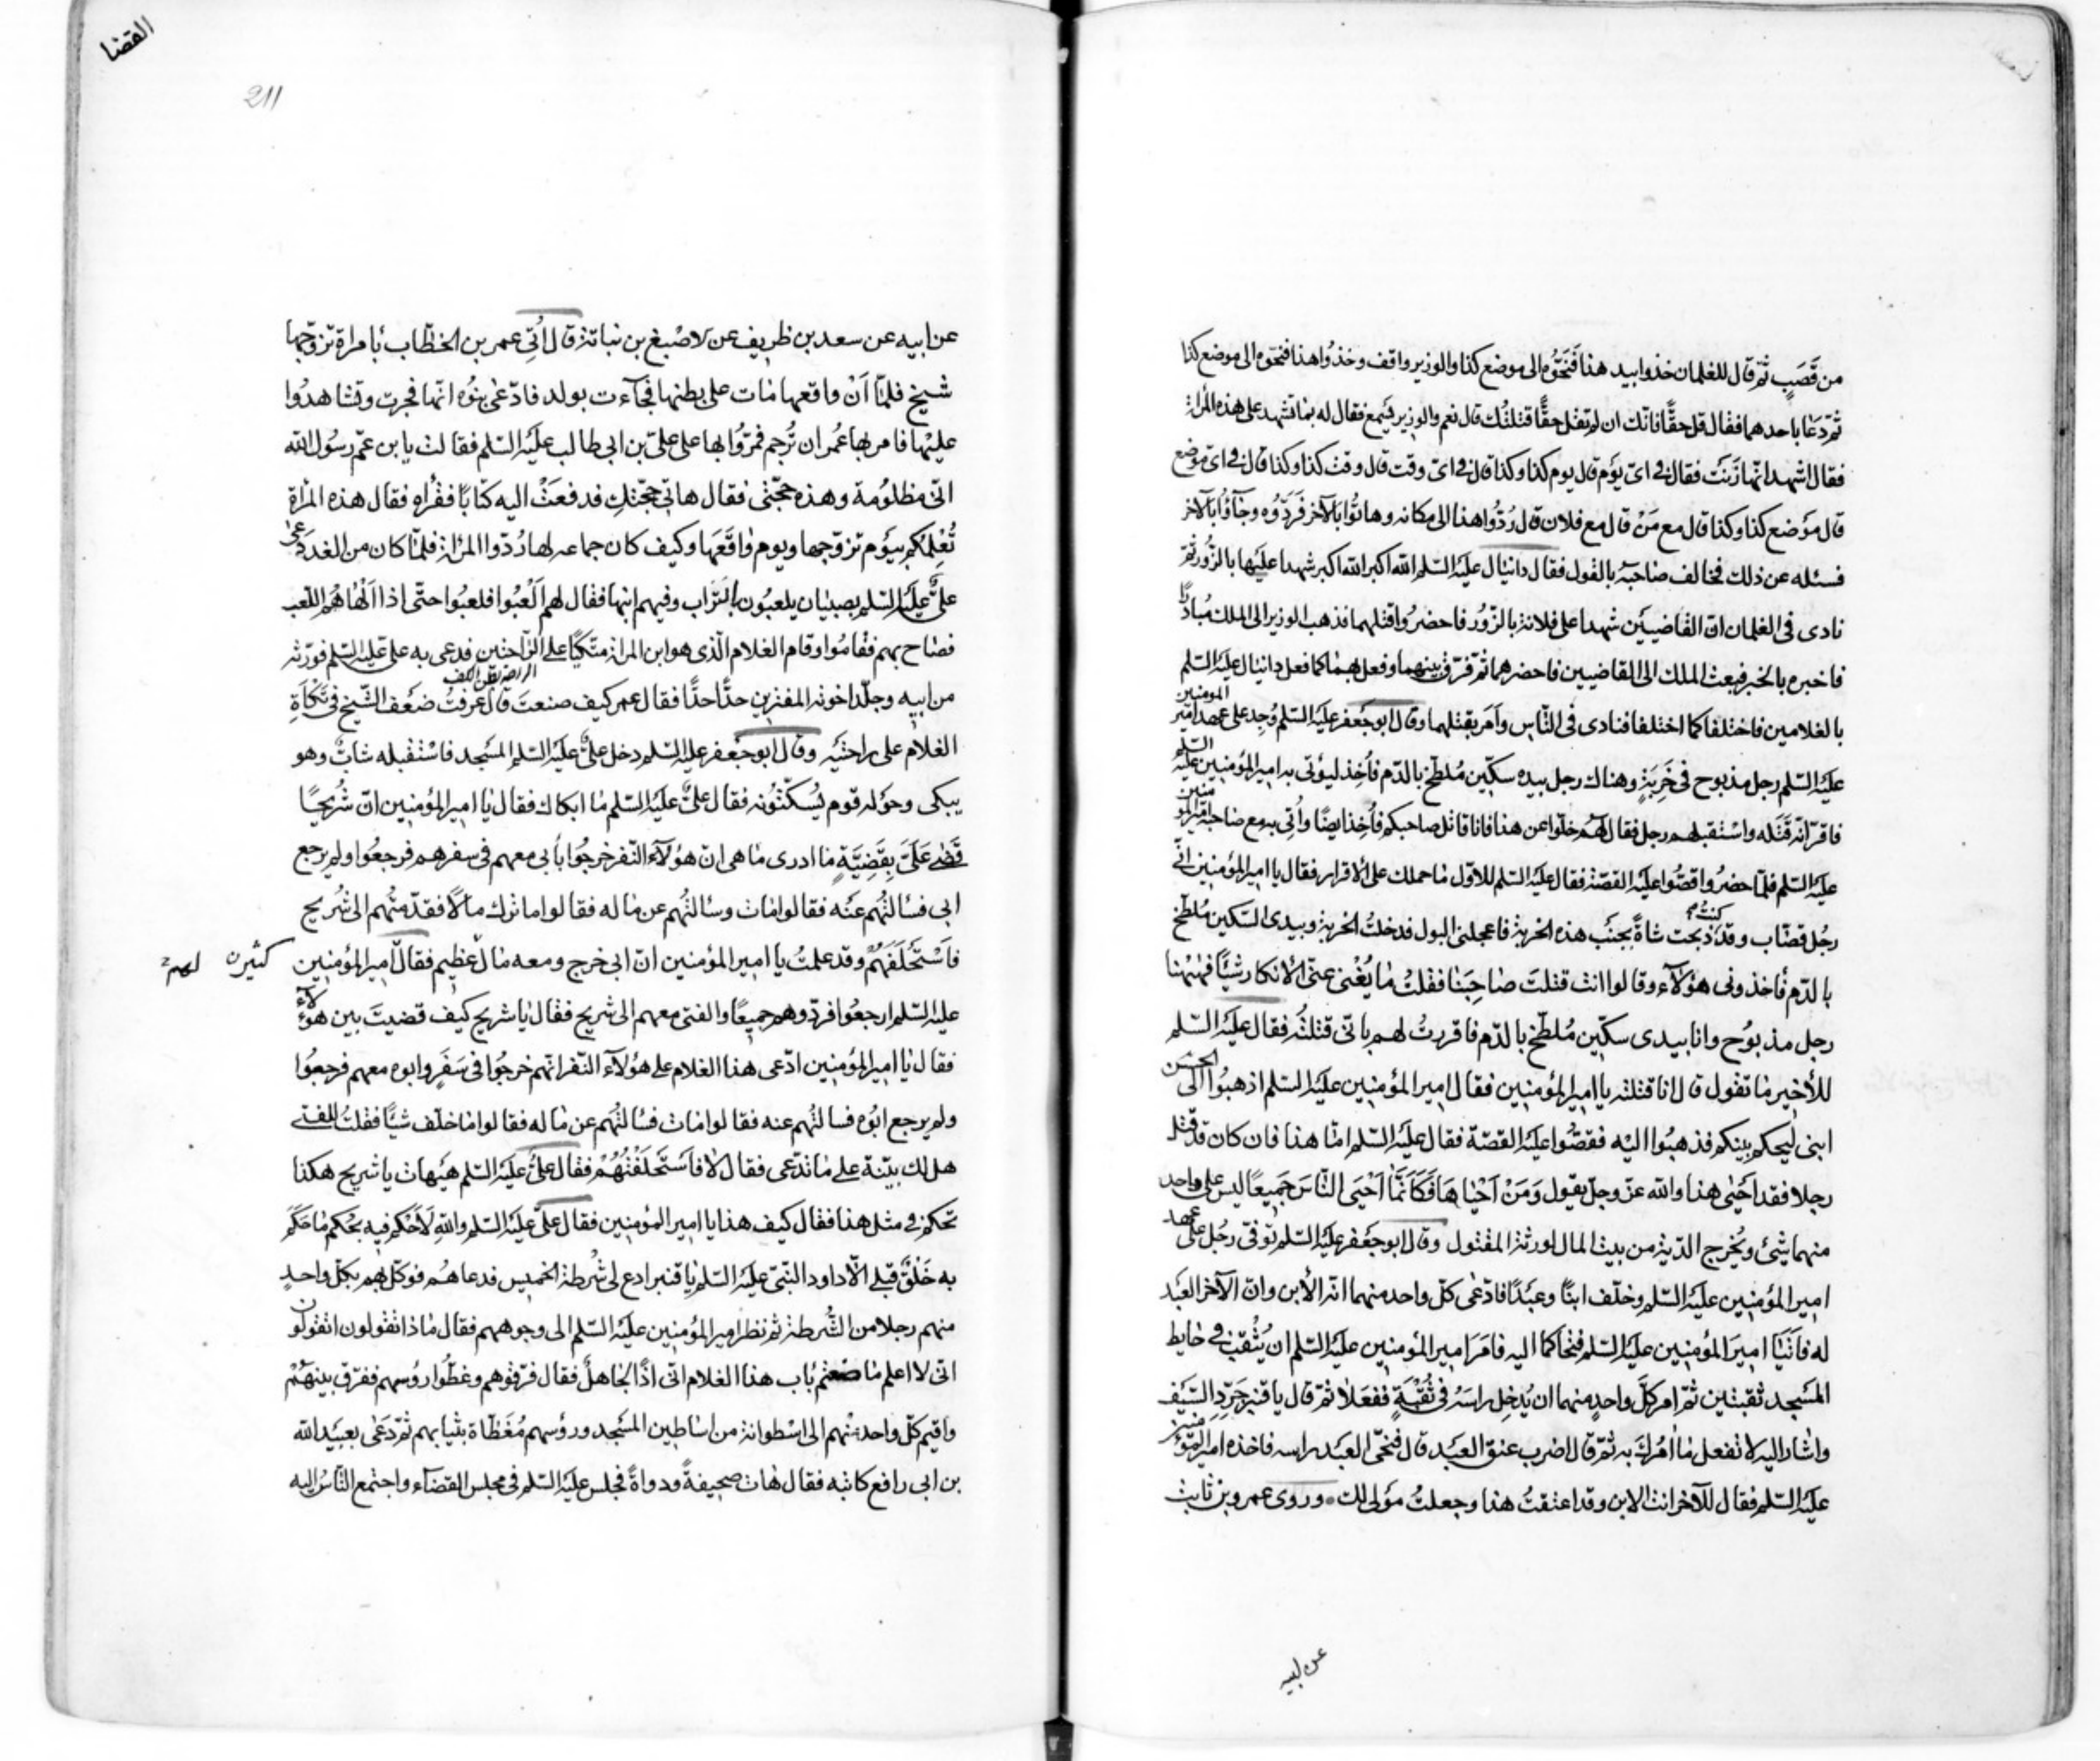 من قَصَبٍ ثمّ قال للغلمان خذوا بيد هذا فَنَحُّوه الى موضع كذا والوزير واقف وخذُوا هذا فنحّوه الى موضع كذا
ثمّ دعا باحدهما فقال قل حقًّا فانّك ان لم تقل حقًّا قتلتُك قال نعم والوزير يسمع فقال له بما تشهد على هذه المرأة
فقال اشهد انّها زَنَت فقال فى اىّ يَوْم قال يوم كذا وكذا قال فى اىّ وقت قال وقت كذا وكذا قال فى اىّ موضع
قال مَوْضع كذا وكذا قال مع مَنْ قال مع فلان قال رُدُّوا هذا الى مكانه وهاتُوا بالآخر فَرَدُّوه وجآؤُا بالآخر
فسئله عن ذلك فخالف صاحبَهُ بالقول فقال دانيال عليْه السّلم الله اكبر الله اكبر شهدا عليْها بالزُّور ثمّ
نادى فى الغلمان انّ القاضيَيْن شهدا على فلانة بالزُّور فاحضرُوا قتلهما فذهب الوزير الى الملك مُبادرًا
فاخبره بالخبر فبعث الملك الى القاضيين فاحضرهما ثمّ فرّق بينهما وفعل بهما كما فعل دانيال عليْه السّلم
بالغلامين فاختلفا كما اختلفا فنادى فى النّاس وأمر بقتلهما وقال ابو جَعْفر عليْه السّلم وُجِد على عهد امير المومنين
عليْه السّلم رجل مذبوح فى خَرِبَةٍ وهناك رجل بيده سكّين مُلطّخ بالدّم فأُخِذ ليؤتى به امير المؤمنين عليْه السّلم
فاقرّ انّه قَتَله واسْتقبلهم رجل فقال لهُم خلّوا عن هذا فانا قاتل صاحبكم فأُخِذ ايضًا وأُتى به مع صاحبه امير المؤمنين
عليْه السّلم فلمّا حضرُوا قصُّوا عليْه القصّة فقال عليْه السّلم للاوّل ما حملك على الاقرار فقال يا امير المؤمنين انّى
رجُل قصّاب وقد كنتُ ذبحت شاةً بجَنْب هذه الخربة فاعجلنى البول فدخلتُ الخربة وبيدى السّكين مُلطّخ
بالدّم فأخذونى هؤلآء وقالوا انت قتلتَ صاحِبَنا فقلتُ ما يُغْنى عنّى الانكار شيْئًا فهيهنا
رجل مذبُوح وانا بيدى سكّين مُلطّخ بالدّم فاقررتُ لهم بانّى قتلتُه فقال عليْه السّلم
للأخير ما تقول قال انا قتلته يا امير المؤمنين فقال امير المؤمنين عليْه السّلم اذهبُوا الى الحسَن
ابنى ليحكم بينكم فذهبُوا اليْه فقصُّوا عليْه القصّة فقال عليْه السّلم امّا هذا فان كان قد قتل
رجلا فقد احْيٰى هذا والله عزّ وجلّ يقول وَمَنْ اَحْيٰاهَا فَكَاَنَّمَا اَحْيَى النّاسَ جَمِيعًا ليس على واحد
منهما شئ ويُخرج الدّية من بيت المال لورثة المقتول وقال ابو جَعْفر عليْه السّلم تُوفّى رجُل على عهد
امير المؤمنين عليْه السّلم وخلّف ابنًا وعبْدًا فادّعى كلّ واحد منهما انّه الأبن وانّ الآخر العبْد
له فاَتَيَا اميرَ المؤمنين عليْه السّلم فتحاكما اليه فامَرَ امير المؤمنين عليْه السّلم ان يُثْقب فى حايط
المسْجد ثقبتين ثمّ امر كلَّ واحدٍ منهما ان يُدخل راسَهُ فى ثُقْبَةٍ ففعَلا ثمّ قال يا قنبر جَرِّد السّيْف
واشار اليه لا تفعل ما آمُرُك به ثمّ قال اضرب عنق العبْد قال فنحّى العبْد راسه فاخذه امير المؤمنين
عليْه السّلم فقال للآخر انت الابن وقد اعتقتُ هذا وجعلتُ مَوْلى لك وروى عمرو بن ثابت
عن ابيه
القضا
211
عن ابيه عن سعد بن ظريف عن الاصْبغ بن نباتة قال اُتِى عمر بن الخطّاب بامراة تزوّجها
شيخ فلمّا اَنْ واقعها مات على بطنها فجآءت بولد فادّعى بنُوه انّها فجرت وتشاهدُوا
عليْها فامر بها عُمر ان تُرجم فمرُّوا بها على علىّ بن ابى طالب عليْه السّلم فقالت يا بن عمّ رسُول الله
انّى مظلُومة وهذه حجّتى فقال هاتى حجّتكِ فدفعَتْ اليه كتابًا فقرأه فقال هذه المرْاة
تُعْلِمُكم بيَوْم تزوّجها ويوم واقَعَها وكيف كان جماعه لها رُدّوا المرْاة فلمّا كان من الغد دعى
علىٌّ عليْه السّلم بصبيان يلعبُون بالتراب وفيهم ابنها فقال لهم الْعبُوا فلعبُوا حتّى اذا اَلْهاهُم اللّعب
فصاح بهم فقامُوا وقام الغلام الّذى هو ابن المراة متّكئًا على الرّاحتين فدعى به علىّ عليْه السّلم فورّثه
من ابيه وجلّد اخوته المفترين حدًّا حدًّا فقال عمر كيف صنعتَ قال عرفتُ ضعْف الشّيخ فى تَكْأَةِ
الغلام على راحتيْه وقال ابو جَعْفر عليه السّلم دخل علىٌّ عليْه السّلم المسْجد فاسْتقبله شابٌّ وهو
يبكى وحَوْله قوم يُسكّتُونه فقال علىٌّ عليْه السّلم ما ابكاك فقال يا امير المؤمنين انّ شُريحًا
قَضى عَلَىَّ بِقَضِيّةٍ ما ادرى ما هى انّ هؤلآء النّفر خرجُوا بأبى معهم فى سفرهم فرجعُوا ولم يرجع
ابى فسألتُهم عنْه فقالوا مات وسألتُهم عن ماله فقالوا ما ترك مالاً فقدّمتُهم الى شُريح
فاَسْتَحْلَفَهُمْ وقد علمتُ يا امير المؤمنين انّ ابى خرج ومعه مال عظيم فقال امير المؤمنين
كثير لهم
عليه السّلم ارجعُوا فردّوهم جميعًا والفتى معهم الى شريح فقال يا شريح كيف قضيتَ بين هؤلآء
فقال يا امير المؤمنين ادّعى هذا الغلام على هؤلآء النّفر انّهم خرجُوا فى سَفَرٍ وابوه معهم فرجعُوا
ولم يرجع ابُوه فسالتُهم عنه فقالوا مات فسالتُهم عن ماله فقالوا ما خلّف شيْئًا فقلتُ للفتى
هل لك بيّنة على ما تدّعى فقال لا فاسْتَحْلَفْتُهُمْ فقال علىٌّ عليْه السّلم هيْهات يا شريح هكذا
تحكم فى مثل هذا فقال كيف هذا يا امير المؤمنين فقال علىٌّ عليْه السّلم واللهِ لَأَحْكمنّ فيه بحُكم ما حَكَمَ
به خَلْقٌ قبْلى الاّ داود النّبىّ عليْه السّلم يا قنبر ادع لى شُرطة الخميس فدعاهُم فوكّل بهم بكلّ واحدٍ
منهم رجلا من الشُّرطة ثم نظر امير المؤمنين عليْه السّلم الى وجوههم فقال ماذا تقولون اتقولون
انّى لا اعلم ما صنعتم باب هذا الغلام انّى اذًا لجاهلٌ فقال فرّقُوهم وغطّوا رؤسهم ففرّق بينهُمْ
واقيم كلّ واحد منْهم الى اسْطوانة من اساطين المسْجد ورؤسهم مُغَطّاة بثيابهم ثمّ دَعٰى بعبيْد الله
بن ابى رافع كاتبه فقال هات صحيفةً ودواةً فجلس عليْه السّلم فى مجلس القضآء واجتمع النّاسُ اليه